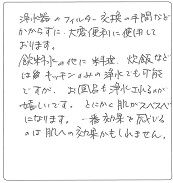 浄水器のフィルター交換の手間など
かからずに、大変便利に使用して
おります。
飲料水の他に料理、炊飯など
は キッチンのみの浄水でも可能
ですが、お風呂も浄水入れるのが
嬉しいです。とにかく肌がスベスベ
になります。一番効果を感じる
のは肌への効果かもしれません。